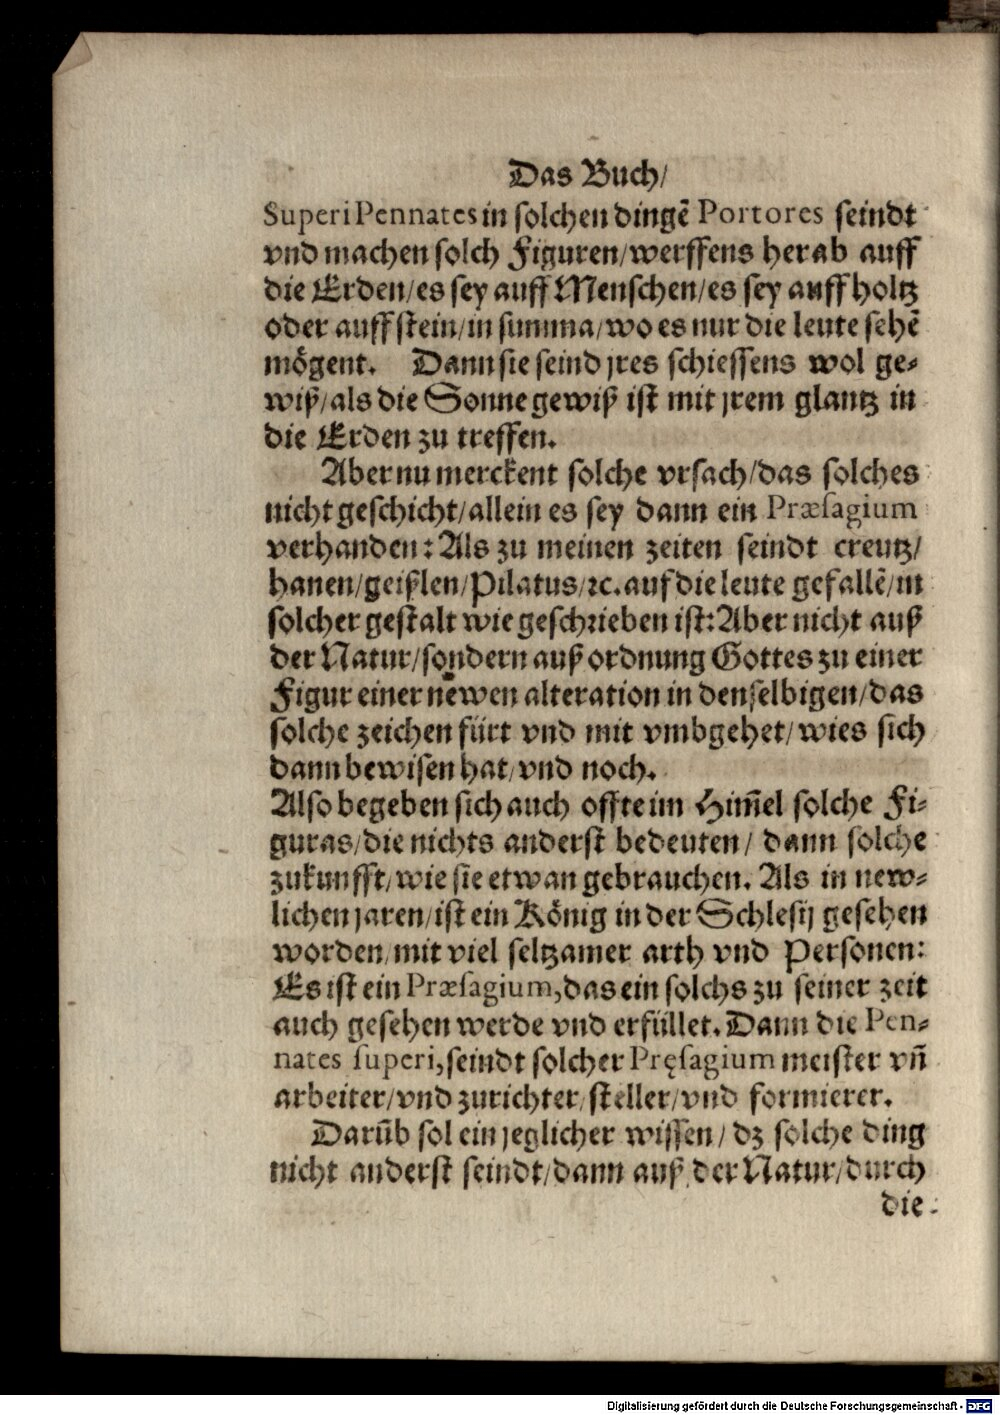 Das Buch/
Superi Pennates in solchen dingẽ Portores seindt
vnd machen solch Figuren/werffens herab auff
die Erden/es sey auff Menschen/es sey auff holtz
oder auff stein/in summa/wo es nur die leute sehẽ
mögent. Dann sie seind jres schiessens wol ge-
wiß/als die Sonne gewiß ist mit jrem glantz in
die Erden zu treffen.
Aber nu merckent solche vrsach/das solches
nicht geschicht/allein es sey dann ein Præsagium
verhanden: Als zu meinen zeiten seindt creutz/
hanen/geißlen/Pilatus/ꝛc. auf die leute gefallẽ/in
solcher gestalt wie geschrieben ist: Aber nicht auß
der Natur/sondern auß ordnung Gottes zu einer
Figur einer newen alteration in denselbigen/das
solche zeichen fürt vnd mit vmbgehet/wies sich
dann bewisen hat/vnd noch.
Also begeben sich auch offte im Him̃el solche Fi-
guras/die nichts anderst bedeuten/ dann solche
zukunfft/wie sie etwan gebrauchen. Als in new-
lichen jaren/ist ein König in der Schlesij gesehen
worden/mit viel seltzamer arth vnd Personen:
Es ist ein Præsagium, das ein solchs zu seiner zeit
auch gesehen werde vnd erfüllet. Dann die Pen-
nates superi, seindt solcher Pręsagium meister vñ
arbeiter/vnd zurichter/steller/vnd formierer.
Darũb sol ein jeglicher wissen/ dz solche ding
nicht anderst seindt/dann auß der Natur/durch
die
Digitalisierung gefördert durch die Deutsche Forschungsgemeinschaft - DFG